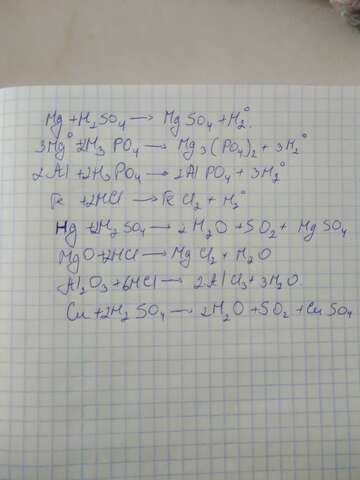 Mg + H₂SO₄ → MgSO₄ + H₂°.
3Mg° + 2H₃PO₄ → Mg₃(PO₄)₂ + 3H₂°
2Al + 2H₃PO₄ → 2AlPO₄ + 3H₂°
Fe + 2HCl → FeCl₂ + H₂°
Hg + 2H₂SO₄ → 2H₂O + SO₂ + MgSO₄
MgO + 2HCl → MgCl₂ + H₂O
Al₂O₃ + 6HCl → 2AlCl₃ + 3H₂O.
Cu + 2H₂SO₄ → 2H₂O + SO₂ + CuSO₄